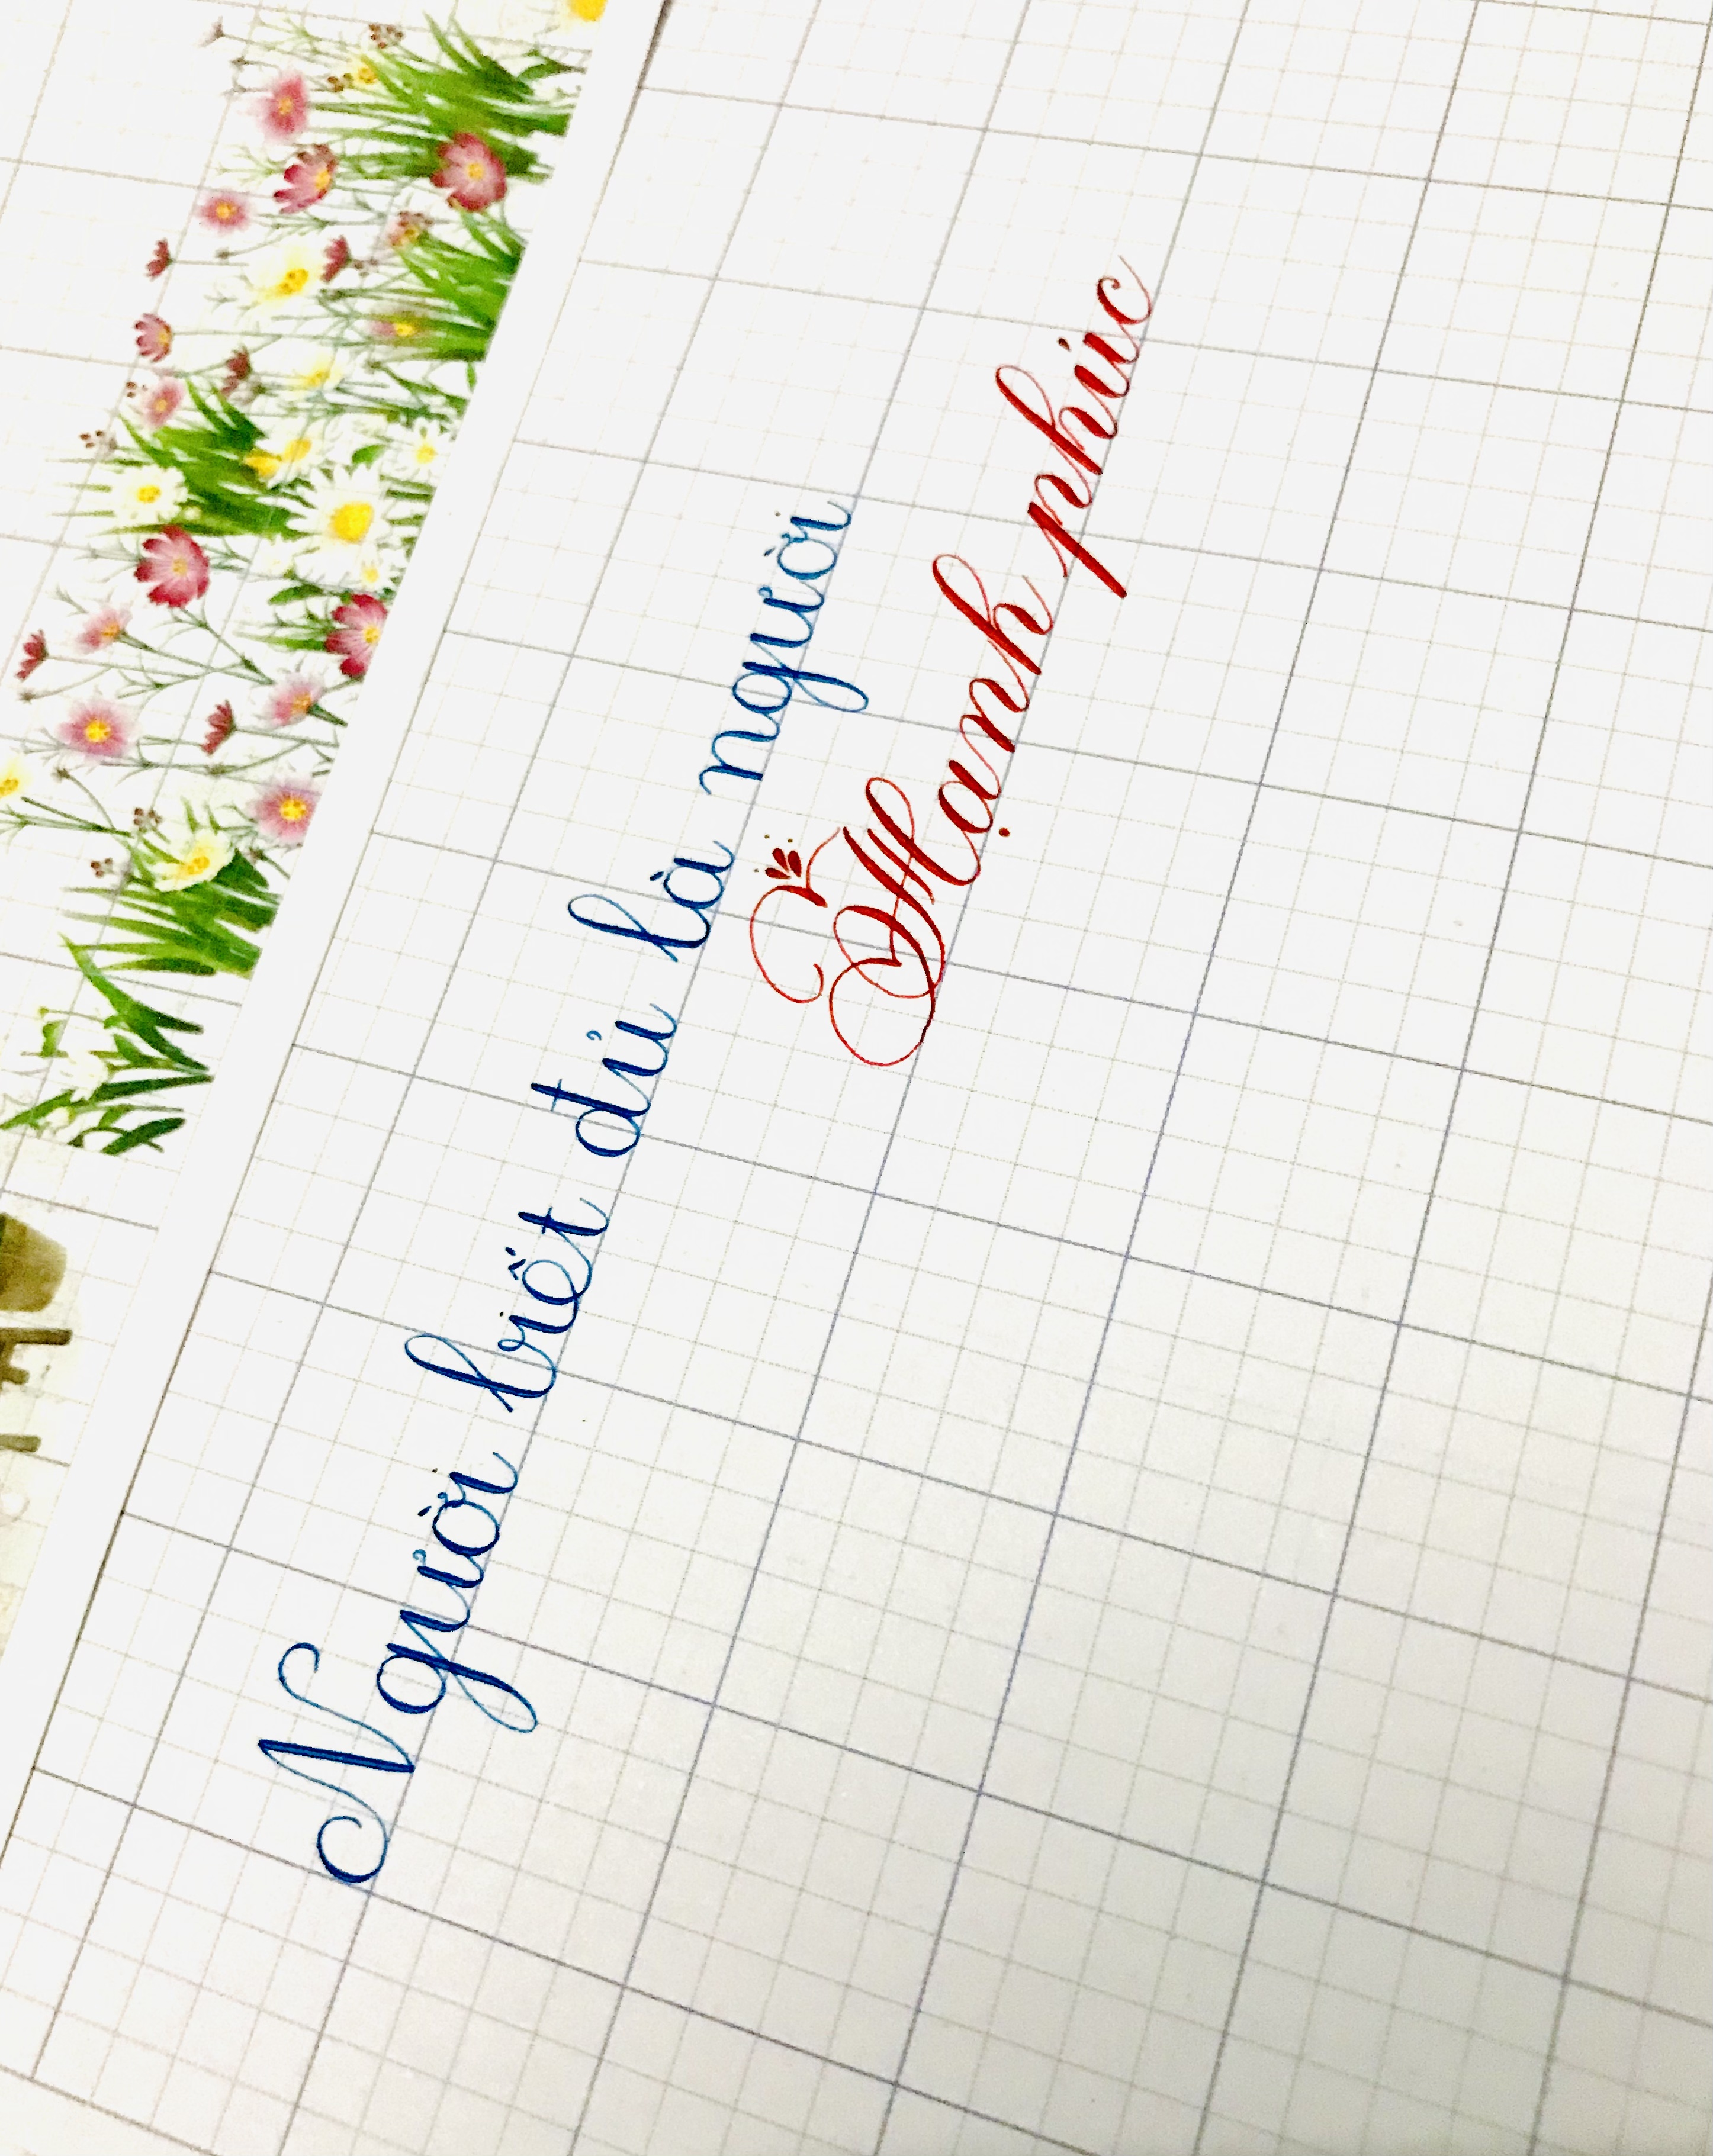 Người biết đủ là người
Hạnh phúc